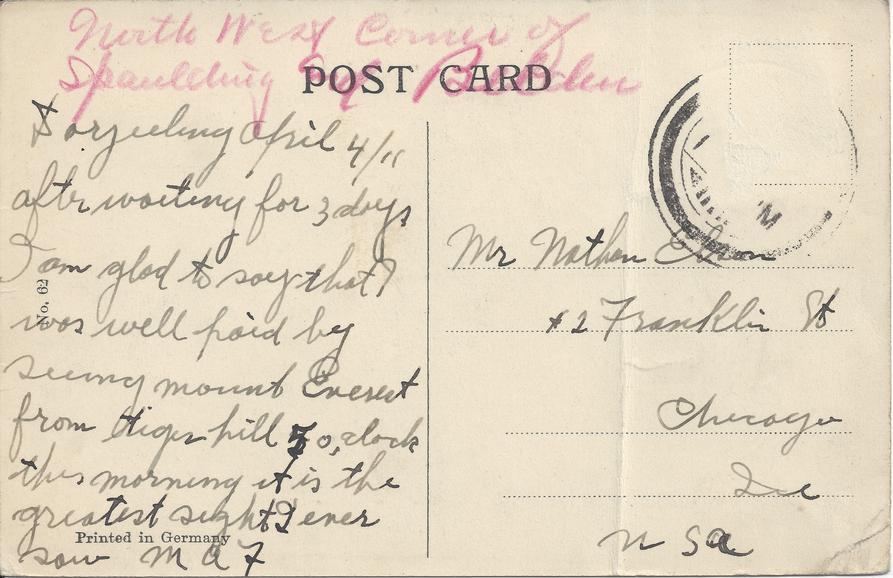 North West Corner of
Spaulding
POST CARD
Darjeeling April 4/11
after waiting for 3 days
I am glad to say that I
was well paid by
seeing mount Everest
from tiger hill 5 o,clock
this morning it is the
greatest sight I ever
saw M A F
No. 62
Printed in Germany
Mr Nathan
42 Franklin St
Chicago
Ill
U S A